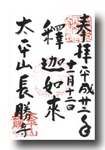 奉拝
平成廿一年
十月十二日
釋迦如来
太平山長勝寺